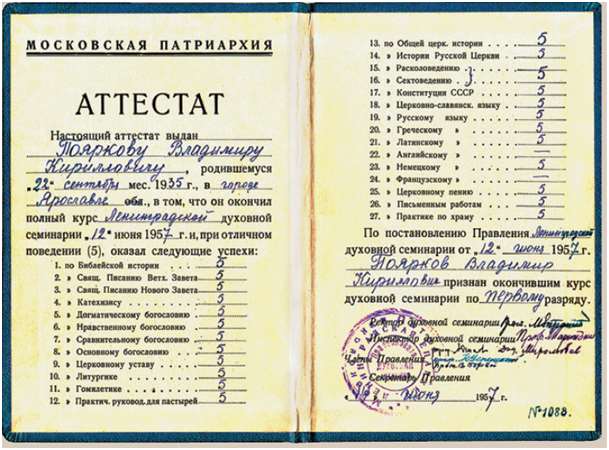 МОСКОВСКАЯ ПАТРИАРХИЯ
АТТЕСТАТ
Настоящий аттестат выдан
Пояркову Владимиру
Кирилловичу, родившемуся
"22" сентября мес. 1935 г., в городе
Ярославле обл., в том, что он окончил
полный курс Ленинградской духовной
семинарии "12" июня 1957 г. и, при отличном
поведении (5), оказал следующие успехи:
1. по Библейской истории . . . . 5
2. » Свящ. Писанию Ветх. Завета 5
3. » Свящ. Писанию Нового Завета 5
4. » Катехизису . . . . 5
5. » Догматическому богословию 5
6. » Нравственному богословию 5
7. » Сравнительному богословию 5
8. » Основному богословию . . 5
9. » Церковному уставу . . . 5
10. » Литургике . . . . 5
11. » Гомилетике . . . . 5
12. » Практич. руковод. для пастырей 5
13. по Общей церк. истории . . . . 5
14. » Истории Русской Церкви . . 5
15. » Расколоведению . . . . 5
16. » Сектоведению . . . . 5
17. » Конституции СССР . . . . 5
18. » Церковно-славянск. языку . 5
19. » Русскому языку . . . . 5
20. » Греческому » . . . . 5
21. » Латинскому » . . . . 5
22. » Английскому » . . . . —
23. » Немецкому » . . . . 5
24. » Французскому » . . . . —
25. » Церковному пению . . . . 5
26. » Письменным работам . . . 5
27. » Практике по храму . . . . 5
По постановлению Правления Ленинградской
духовной семинарии от "12" июня 1957 г.
Поярков Владимир
Кириллович признан окончившим курс
духовной семинарии по первому разряду.
Ректор духовной семинарии
Инспектор духовной семинарии
Члены Правления
Секретарь Правления
июня 1957 г.
№1088.